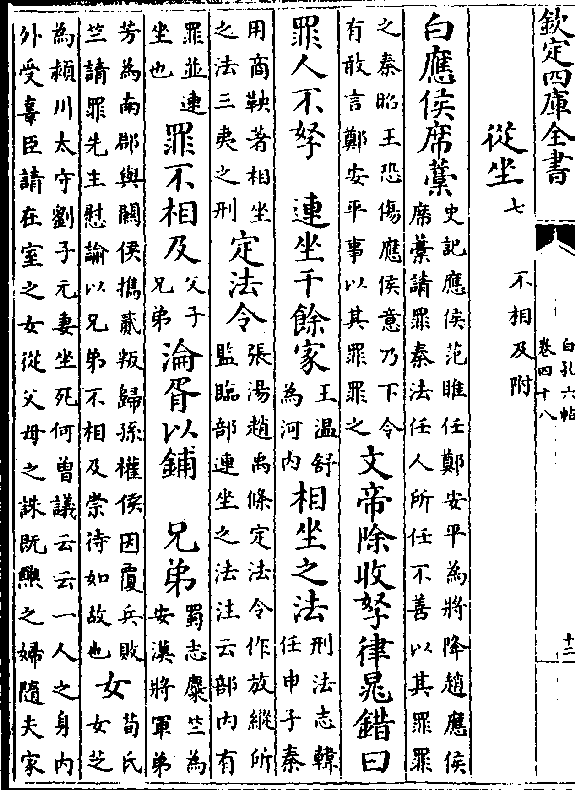 欽定四庫全書
白孔六帖
卷四十八
十二
從坐七 不相及附
白應侯席藁 史記應侯范睢任鄭安平為將降趙應侯
席藁請罪秦法任人所任不善以其罪罪
之秦昭王恐傷應侯意乃下令
有敢言鄭安平事以其罪罪之 文帝除收孥律晁錯曰
罪人不孥 連坐千餘家 王温舒
為河内 相坐之法 刑法志韓
任申子秦
用商鞅著相坐
之法三夷之刑 定法令 張湯趙禹條定法令作放縱所
監臨部連坐之法注云部内有
罪並連
坐也 罪不相及 父子
兄弟 淪胥以鋪 兄弟 蜀志麋竺為
安漢將軍弟
芳為南郡與關侯攜貳叛歸孫權侯因覆兵敗
竺請罪先生慰諭以兄弟不相及崇待如故也 女 荀氏
女芝
為頴川太守劉子元妻坐死何曾議云云一人之身内
外受辜臣請在室之女從父母之誅既之婦隨夫家